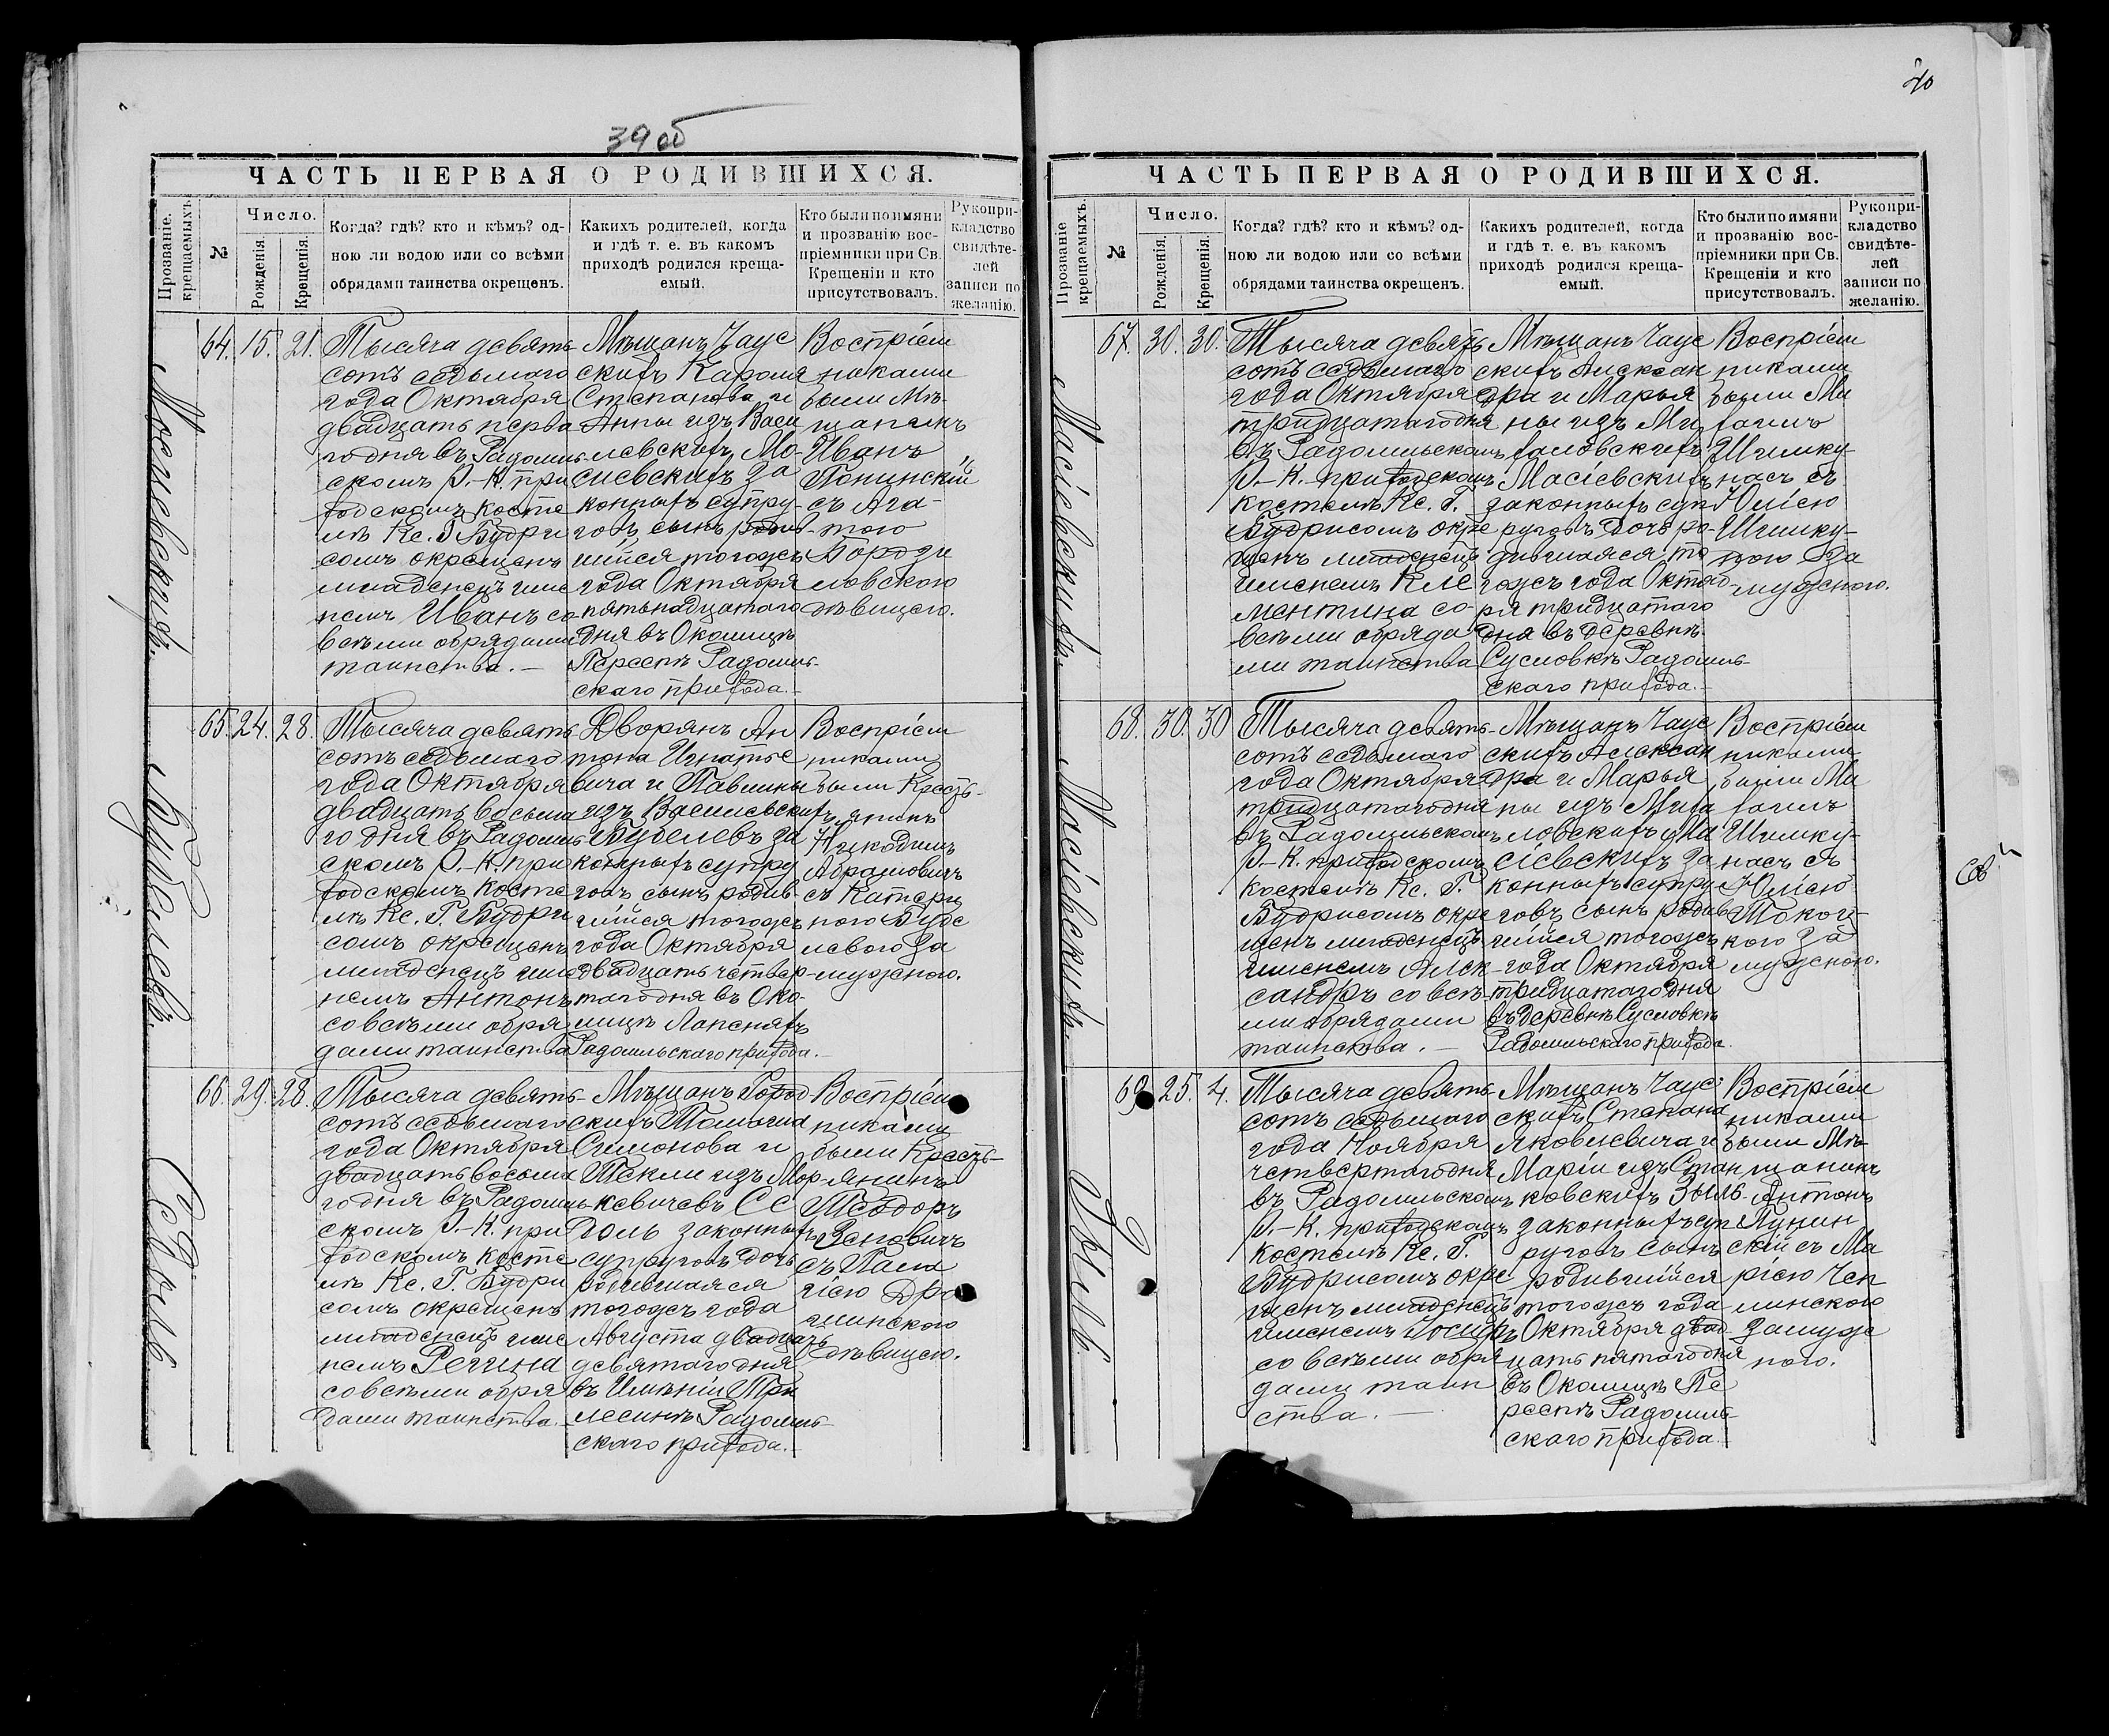 39 об
ЧАСТЬ ПЕРВАЯ О РОДИВШИХСЯ.
Прозваніе.
крещаемыхъ
№
Число.
Рожденія.
Крещенія.
Когда? гдѣ? кто и кѣмъ? од-
ною ли водою или со всѣми
обрядами таинства окрещенъ.
Какихъ родителей, когда
и гдѣ т. е. въ какомъ
приходѣ родился креща-
емый.
Кто были по имяни
и прозванію вос-
пріемники при Св.
Крещеніи и кто
присутствовалъ.
Рукопри-
кладство
свидѣте-
лей
записи по
желанію.
64. 15. 21.
Тысяча девять
сотъ седьмаго
года Октября
двадцать перва
го дня въ Радомль
скомъ Р.-К. при
ходскомъ косте
лѣ Кс. Г. Будри
сомъ окрещенъ
младенецъ име
немъ Иванъ со
всѣми обрядами
таинства. —
Мѣщанъ Чаус
скихъ Кароля
Степанова и
Анны изъ Васи
левскихъ Мо-
сіевскихъ за
конныхъ супру
говъ сынъ родив-
шійся тогожъ
года Октября
пятьнадцатаго
дня въ Околицѣ
Пересепѣ Радомль-
скаго прихода.—
Воспріем
никами
были Мѣ-
щанинъ
Иванъ
Понинскій
съ Ага-
тою
Бороди
ловскою
дѣвицею.
65. 24. 28.
Будзелевъ.
Тысяча девять
сотъ седьмаго
года Октября
двадцать восьма
го дня въ Радомль
скомъ Р.-К. при
ходскомъ косте
лѣ Кс. Г. Будри
сомъ окрещенъ
младенецъ име
немъ Антонъ
со всѣми обря
дами таинства
Дворянъ Ан
тона Игнатье
вича и Павлины
изъ Василевскихъ
Будзелевъ за
конныхъ супру
говъ сынъ родив-
шійся тогожъ
года Октября
двадцать четвер-
таго дня въ Око-
лицѣ Лапеняхъ
Радомльскаго прихода.—
Воспріем
никами
были Кресть-
янинъ
Никодимъ
Абрамовичъ
съ Катери
ною Будзе
левою за
мужною.
66. 29. 28.
Тысяча девять-
сотъ седьмаго
года Октября
двадцать восьма
го дня въ Радомль
скомъ Р.-К. при
ходскомъ косте
лѣ Кс. Г. Будри
сомъ окрещенъ
младенецъ име
немъ Регина
со всѣми обря
дами таинства.
Симонова и
Теклии изъ Мор-
кевичевъ Се
доль законныхъ
супруговъ дочь
родившаяся
тогожъ года
Августа двадцать
девятаго дня
въ Имѣніи Три
лесинѣ Радомль-
скаго прихода.—
Воспріем
никами
были Кресть-
янинъ
Теодоръ
Зеновичъ
съ Пала
гіею Дро
шинскою
дѣвицею.
40
ЧАСТЬ ПЕРВАЯ О РОДИВШИХСЯ.
Прозваніе
крещаемыхъ.
№
Число.
Рожденія.
Крещенія.
Когда? гдѣ? кто и кѣмъ? од-
ною ли водою или со всѣми
обрядами таинства окрещенъ.
Какихъ родителей, когда
и гдѣ т. е. въ какомъ
приходѣ родился креща-
емый.
Кто были по имяни
и прозванію вос-
пріемники при Св.
Крещеніи и кто
присутствовалъ.
Рукопри-
кладство
свидѣте-
лей
записи по
желанію.
67. 30. 30.
Масіевскихъ.
Тысяча девять
сотъ седьмаго
года Октября
тридцатаго дня
въ Радомльскомъ
Р.-К. приходскомъ
костелѣ Кс. Г.
Будрисомъ окре
щенъ младенецъ
именемъ Кле
ментина со
всѣми обряда
ми таинства
Мѣщанъ Чаус
скихъ Алексан
дра и Марья
ны изъ Ми
халовскихъ
Масіевскихъ
законныхъ суп
руговъ дочь ро-
дившаяся то
гожъ года Октяб-
ря тридцатаго
дня въ деревнѣ
Сусловкѣ Радомль-
скаго прихода.—
Воспріем
никами
были Ми
хаилъ
Шимку-
насъ съ
Юліею
Шимку-
ною за
мужною.
68. 30. 30
Масіевскихъ.
Тысяча девять-
сотъ седьмаго
года Октября
тридцатаго дня
въ Радомльскомъ
Р.-К. приходскомъ
костелѣ Кс. Г.
Будрисомъ окре
щенъ младенецъ
именемъ Алек-
сандръ со всѣ-
ми обрядами
таинства. —
Мѣщанъ Чаус
скихъ Алексан
дра и Марья
ны изъ Миха
ловскихъ Ма
сіевскихъ за
конныхъ супру
говъ сынъ родив
шійся тогожъ
года Октября
тридцатаго дня
въ деревнѣ Сусловкѣ
Радомльскаго прихода.
Воспріем
никами
были Ми
хаилъ
Шимку-
насъ съ
Юліею
за
мужною.
69. 25. 4.
Тысяча девять-
сотъ седьмаго
года Ноября
четвертаго дня
въ Радомльскомъ
Р.-К. приходскомъ
костелѣ Кс. Г.
Будрисомъ окре
щенъ младенецъ
именемъ Іосифъ
со всѣми обря
дами таин
ства. —
Мѣщанъ Чаус
скихъ Степана
Яковлевича и
Маріи изъ Стан
ковскихъ Зыль-
законныхъ суп
руговъ сынъ
родившійся
тогожъ года
Октября двад-
цать пятаго дня
въ Околицѣ Пе
ресепѣ Радомль-
скаго прихода.
Воспріем
никами
были Мѣ-
щанинъ
Антонъ
Пунин
скій съ Ма
ріею Чеп
линскою
замуж
ною.